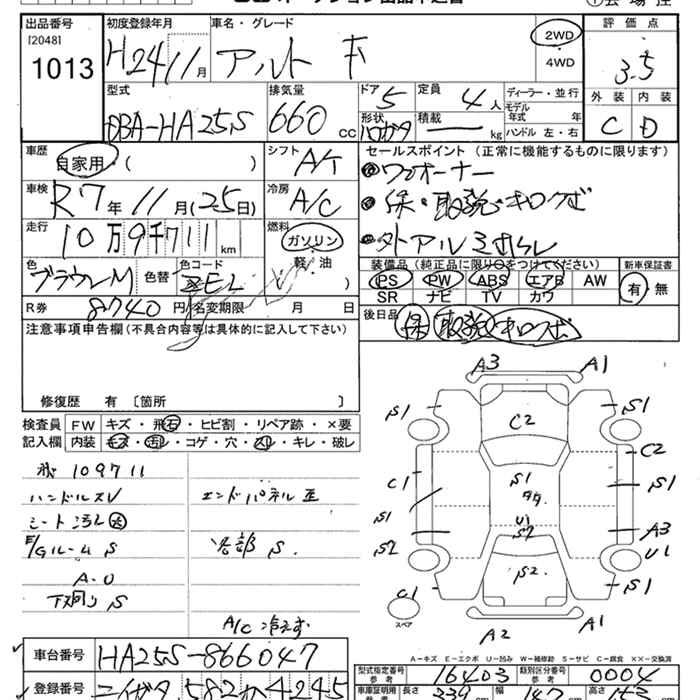 出品番号 初度登録年月 車名・グレード 評価点
[2048]
1013 H24 11月 アルト 2WD 4WD 3.5
型式 排気量 ドア 定員 ディーラー・並行 外装 内装
DBA-HA25S 660CC 5 4人 モデル年式 年 C D
形状 積載 kg ハンドル 左・右
車歴 自家用 ( ) シフト A/T セールスポイント(正常に機能するものに限ります)
ワンオーナー
車検 R7年11月(25日) 冷房 A/C
保・取説・キロクボ
走行 10万9千711km 燃料 ガソリン 軽・油
色 ブラウンM 色替 色コード ZEL
装備品(純正品に限り○をつけてください) 新車保証書
PS PW ABS エアB AW 有 無
SR ナビ TV カワ
R券 8740円 名変期限 月 日
後日品 保 取説 キロクボ
注意事項申告欄(不具合内容等は具体的に記入して下さい)
修復歴 有〔箇所 〕
検査員記入欄 FW キズ・飛石・ヒビ割・リペア跡・×要
内装 キズ・汚れ・コゲ・穴・スリ・キレ・破レ
109711
ハンドルスレ エンドパネル
シート汚れ 大
E/Gルーム S 各部 S
A-U
下廻り S
A/C 冷えず
A3 A1
S1 C2 S1
C2
C1 S1 S1
S1 U1 A3
S2 S2 U1
S2 S1
C1
スペア
A2 A1
A-キズ E-エクボ U-凹み W-補修跡 S-サビ C-腐食 ××-交換済
車台番号 HA25S-866047 型式指定番号 参考 16403 類別区分番号 参考 0004
登録番号 582 4245 車庫証明用 長さ 339 幅 高さ